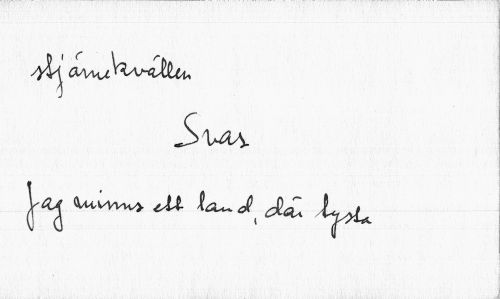 stjärnekvällen
Svar
Jag minns ett land, där tysta